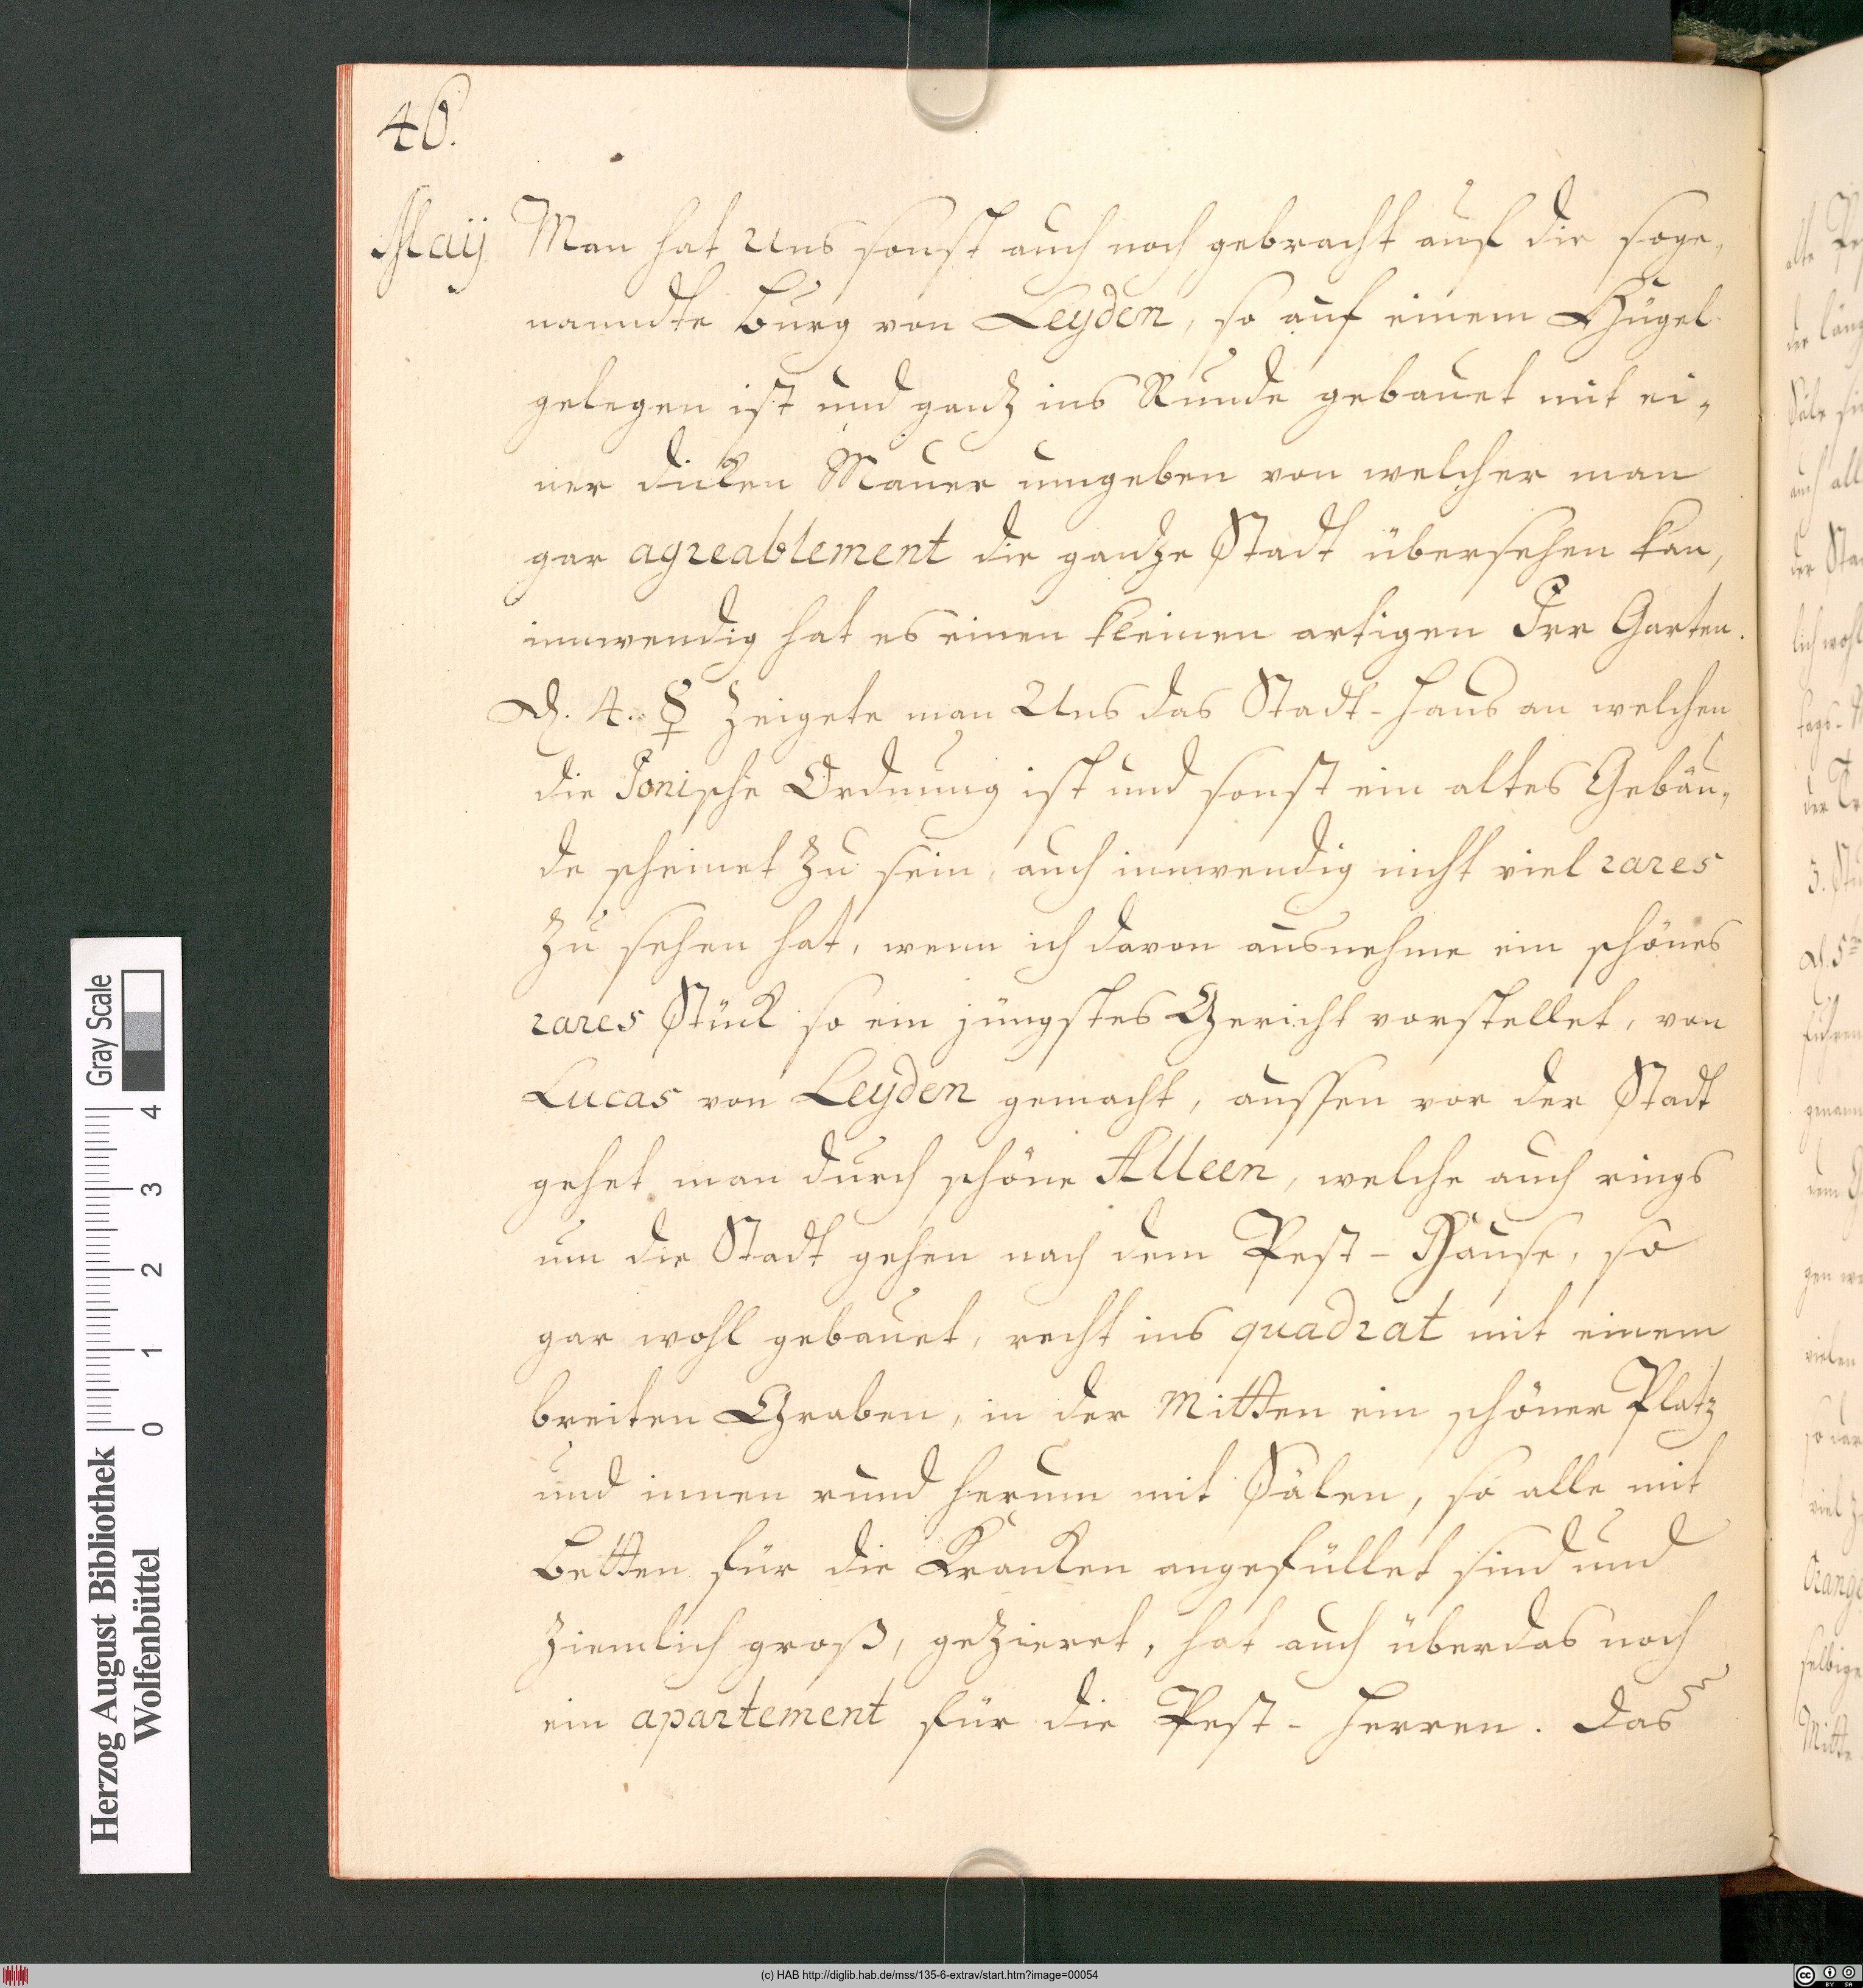 46.
Maij Man hat Uns sonst auch noch gebracht auf die soge„
nanndte Burg von Leyden, so auf einem Hügel
gelegen ist und gantz ins Runde gebauet mit ei„
ner dicken Mauer umgeben von welcher man
gar agreablement die gantze Stadt übersehen kan,
innwendig hat es einen kleinen artigen Irr Garten.
D. 4. ☿ Zeigete man Uns das Stadt-Haus an welchen
die Jonische Ordnung ist und sonst ein altes Gebäu„
de scheinet zu sein, auch innwendig nicht viel rares
zu sehen hat, wenn ich davon ausnehme ein schönes
rares Stück so ein jüngstes Gericht vorstellet, von
Lucas von Leyden gemacht, aussen vor der Stadt
gehet man durch schöne Alleen, welche auch rings
um die Stadt gehen nach dem Pest-Hause, so
gar wohl gebauet, recht ins quadrat mit einem
breiten Graben, in der Mitten ein schöner Platz
und innen rund herum mit Sälen, so alle mit
Betten für die Krancken angefüllet sind und
ziemlich groß, gezieret, hat auch überdas noch
ein apartement für die Pest-Herren. Das
Herzog August Bibliothek
Wolfenbüttel
0 1 2 3 4
Gray Scale
(c) HAB http://diglib.hab.de/mss/135-6-extrav/start.htm?image=00054